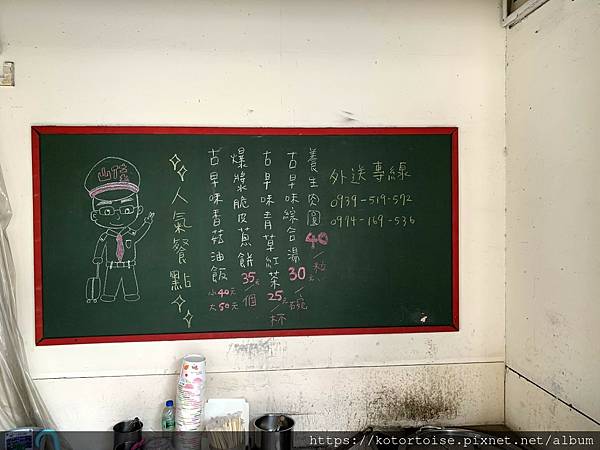 外送專線
0939-519-592
0974-169-536
養生肉圓 40/粒
古早味綜合湯 30元/碗
古早味青草紅茶 25元/杯
爆漿脆皮蔥餅 35元/個
古早味香菇油飯 小40元 大50元
人氣餐點
https://kotortoise.pixnet.net/album